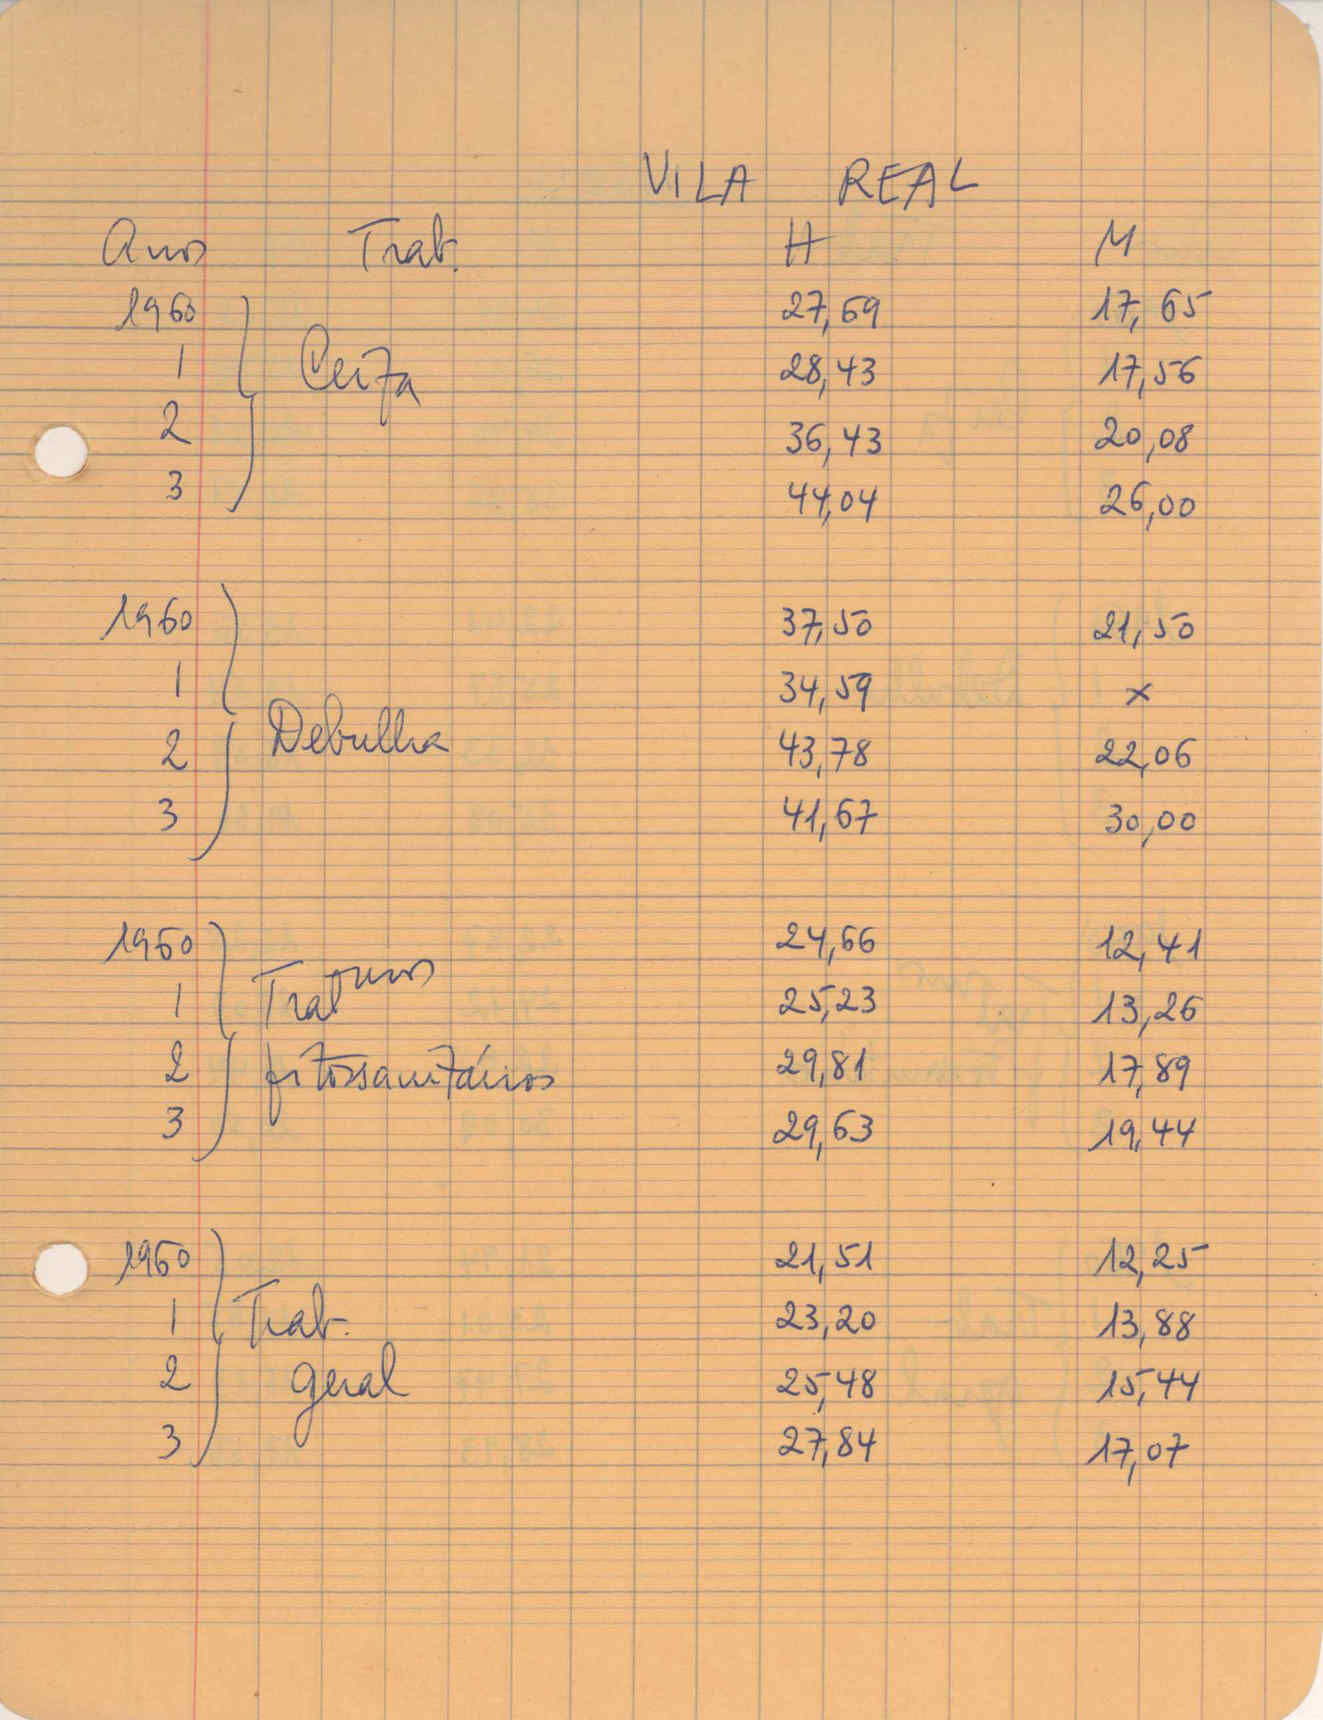 VILA REAL
Anos Trab. H M
1960 27,69 17,65
1 Ceifa 28,43 17,56
2 36,43 20,08
3 44,04 26,00
1960 37,50 21,50
1 34,59 x
2 Debulha 43,78 22,06
3 41,67 30,00
1960 24,66 12,41
1 Tratmos 25,23 13,26
2 fitossanitários 29,81 17,89
3 29,63 19,44
1960 21,51 12,25
1 Trab. 23,20 13,88
2 geral 25,48 15,44
3 27,84 17,07